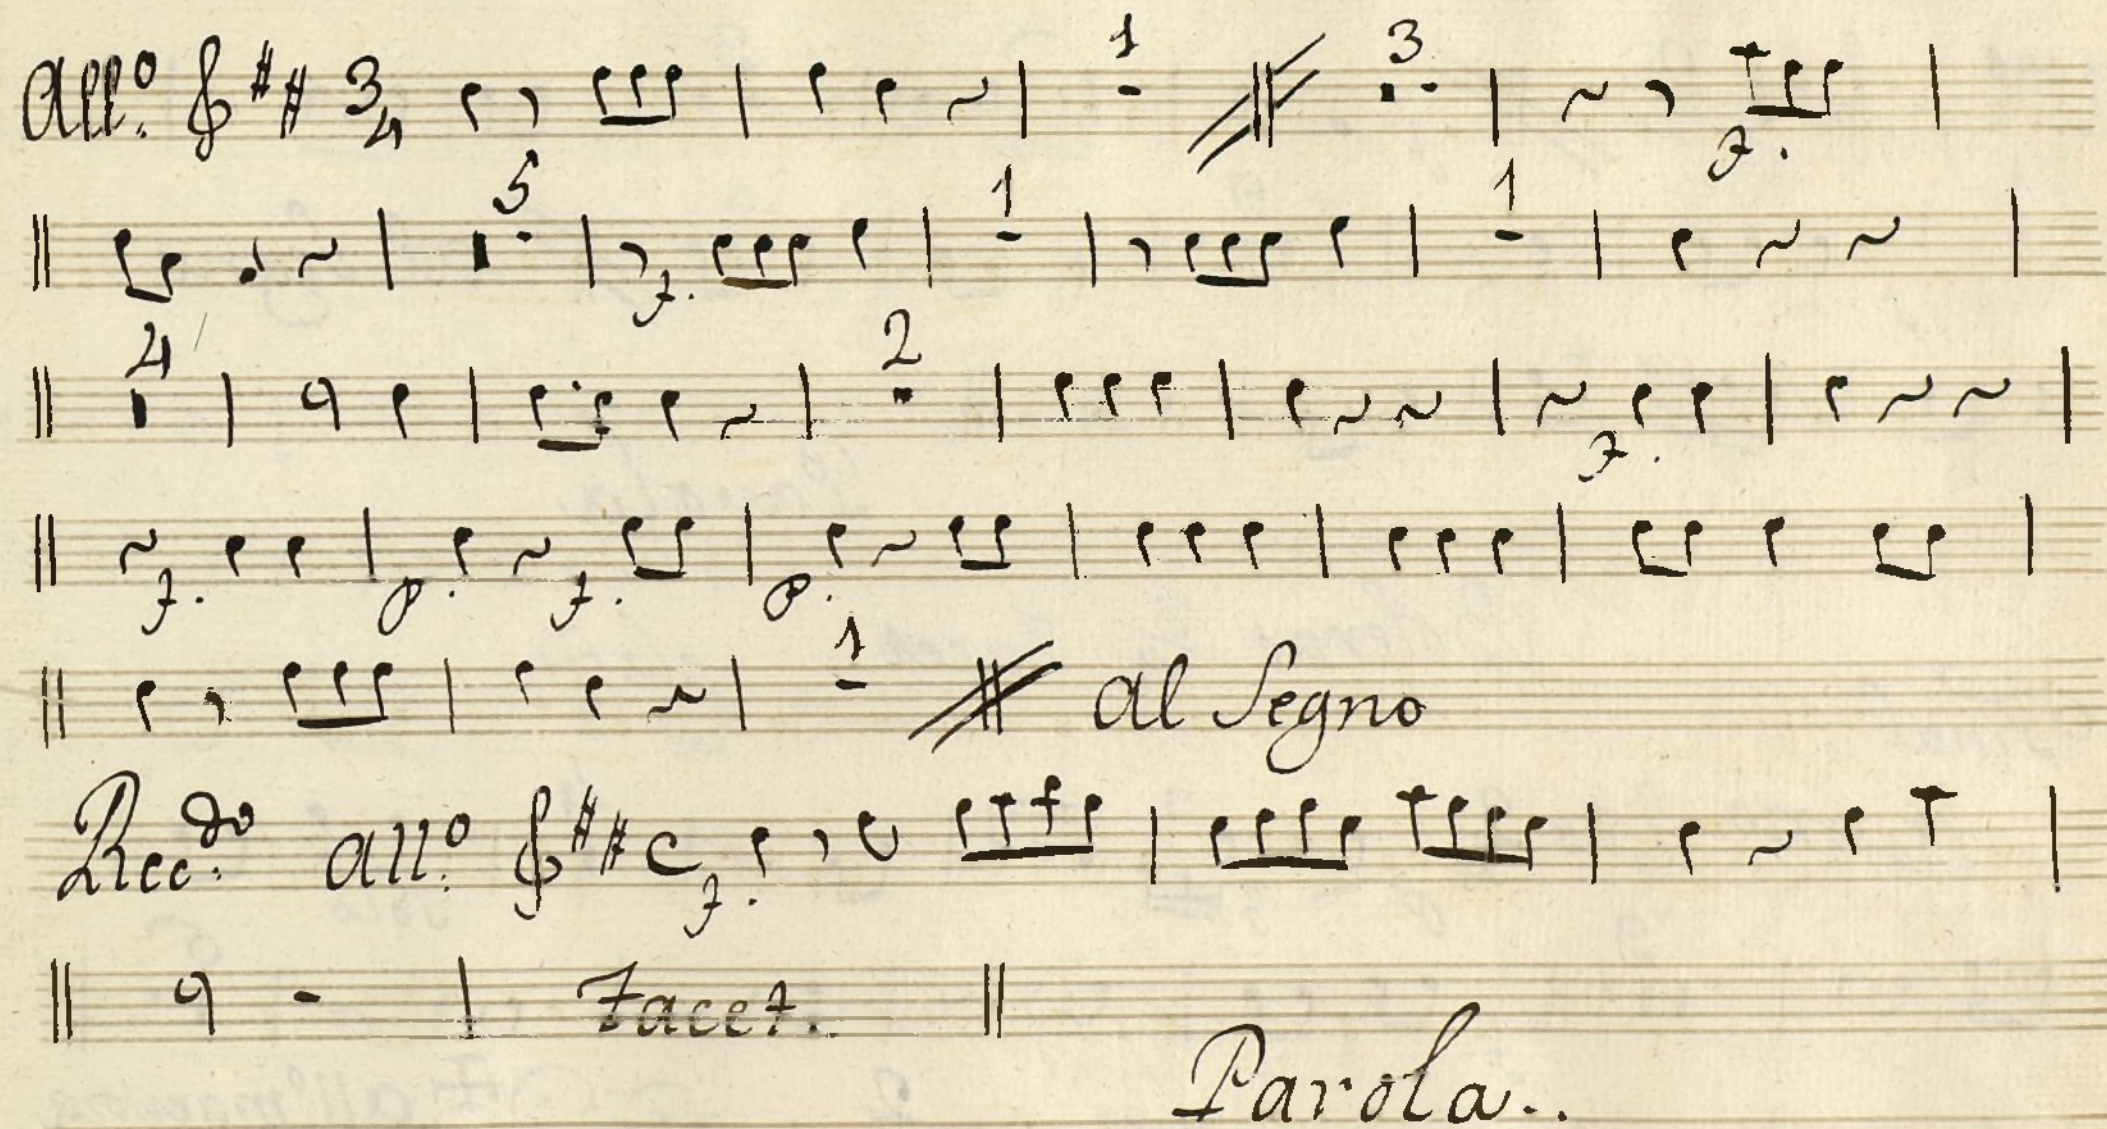 All.º 3/4 1 3
f.
5 1 1
f.
4 2
f.
f. p. f. p.
1 al Segno
Rec.do all.º C
f.
Tacet.
Parola..